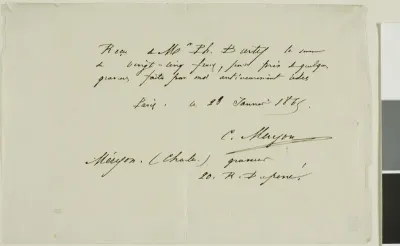 Reçu de Mr Ph. Burty la somme
de vingt-cinq francs, pour prix de quelques
gravures faites par moi antérieurement cédées
Paris. ce 28 Janvier 186
C. Meryon
Méryon. (Charles) graveur
20. R. Duperré